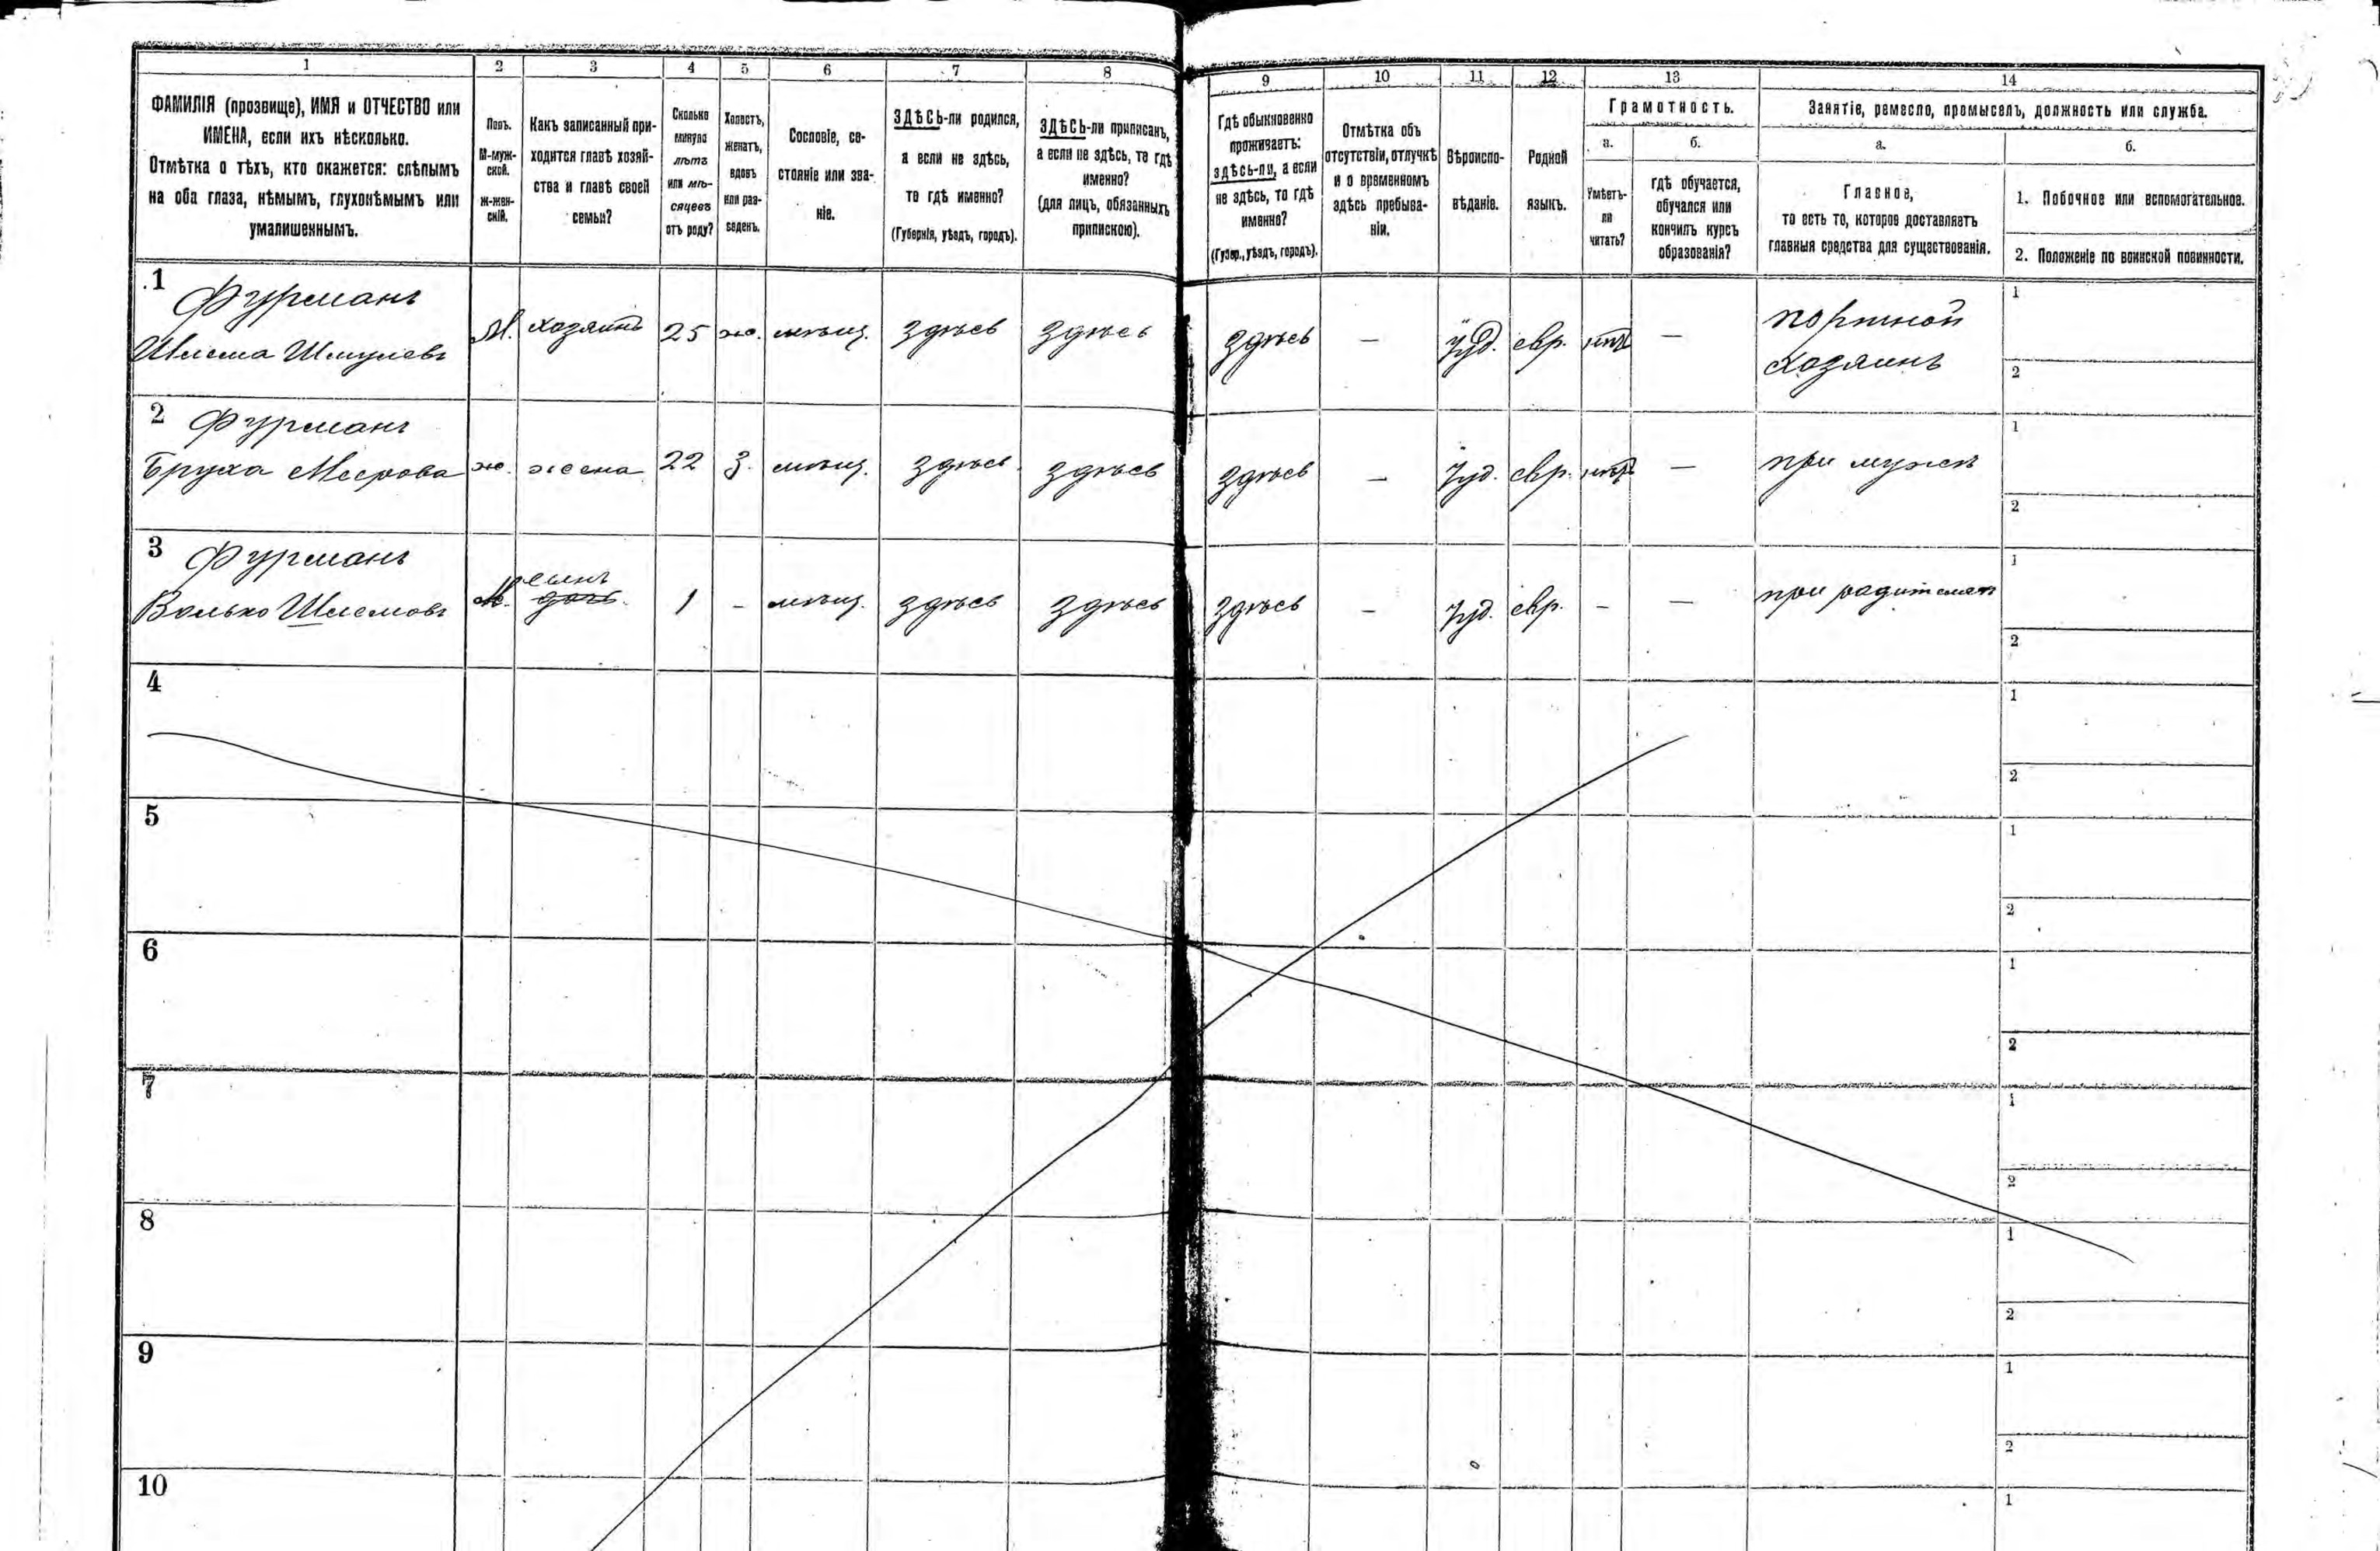 1 2 3 4 5 6 7 8 9 10 11 12 13 14
ФАМИЛІЯ (прозвище), ИМЯ и ОТЧЕСТВО или
ИМЕНА, если ихъ нѣсколько.
Отмѣтка о тѣхъ, кто окажется: слѣпымъ
на оба глаза, нѣмымъ, глухонѣмымъ или
умалишеннымъ.
Полъ.
М-муж-
ской.
Ж-жен-
скій.
Какъ записанный при-
ходится главѣ хозяй-
ства и главѣ своей
семьи?
Сколько
минуло
лѣтъ
или мѣ-
сяцевъ
отъ роду?
Холостъ,
женатъ,
вдовъ
или раз-
веденъ.
Сословіе, со-
стояніе или зва-
ніе.
ЗДѢСЬ-ли родился,
а если не здѣсь,
то гдѣ именно?
(Губернія, уѣздъ, городъ).
ЗДѢСЬ-ли приписанъ,
а если не здѣсь, то гдѣ
именно?
(для лицъ, обязанныхъ
припискою).
Гдѣ обыкновенно
проживаетъ:
здѣсь-ли, а если
не здѣсь, то гдѣ
именно?
(Губер., уѣздъ, городъ).
Отмѣтка объ
отсутствіи, отлучкѣ
и о временномъ
здѣсь пребыва-
ніи.
Вѣроиспо-
вѣданіе.
Родной
языкъ.
Грамотность.
а.
Умѣетъ-
ли
читать?
б.
гдѣ обучается,
обучался или
кончилъ курсъ
образованія?
Занятіе, ремесло, промыселъ, должность или служба.
а.
Главное,
то есть то, которое доставляетъ
главныя средства для существованія.
б.
1. Побочное или вспомогательное.
2. Положеніе по воинской повинности.
1 Фурманъ
Шлема Шмулевъ
М. хозяинъ 25 ж. мѣщ. здѣсь здѣсь здѣсь — Іуд. евр. нѣтъ — портной
хозяинъ
1
2
2 Фурманъ
Бруха Меерова ж. жена 22 з. мѣщ. здѣсь здѣсь здѣсь — Іуд. евр. нѣтъ — при мужѣ
1
2
3 Фурманъ
сынъ
Волько Шлемовъ М. дочь. 1 - мѣщ. здѣсь здѣсь здѣсь — Іуд. евр. — — при родителяхъ
1
2
4
1
2
5
1
2
6
1
2
7
1
2
8
1
2
9
1
2
10
1